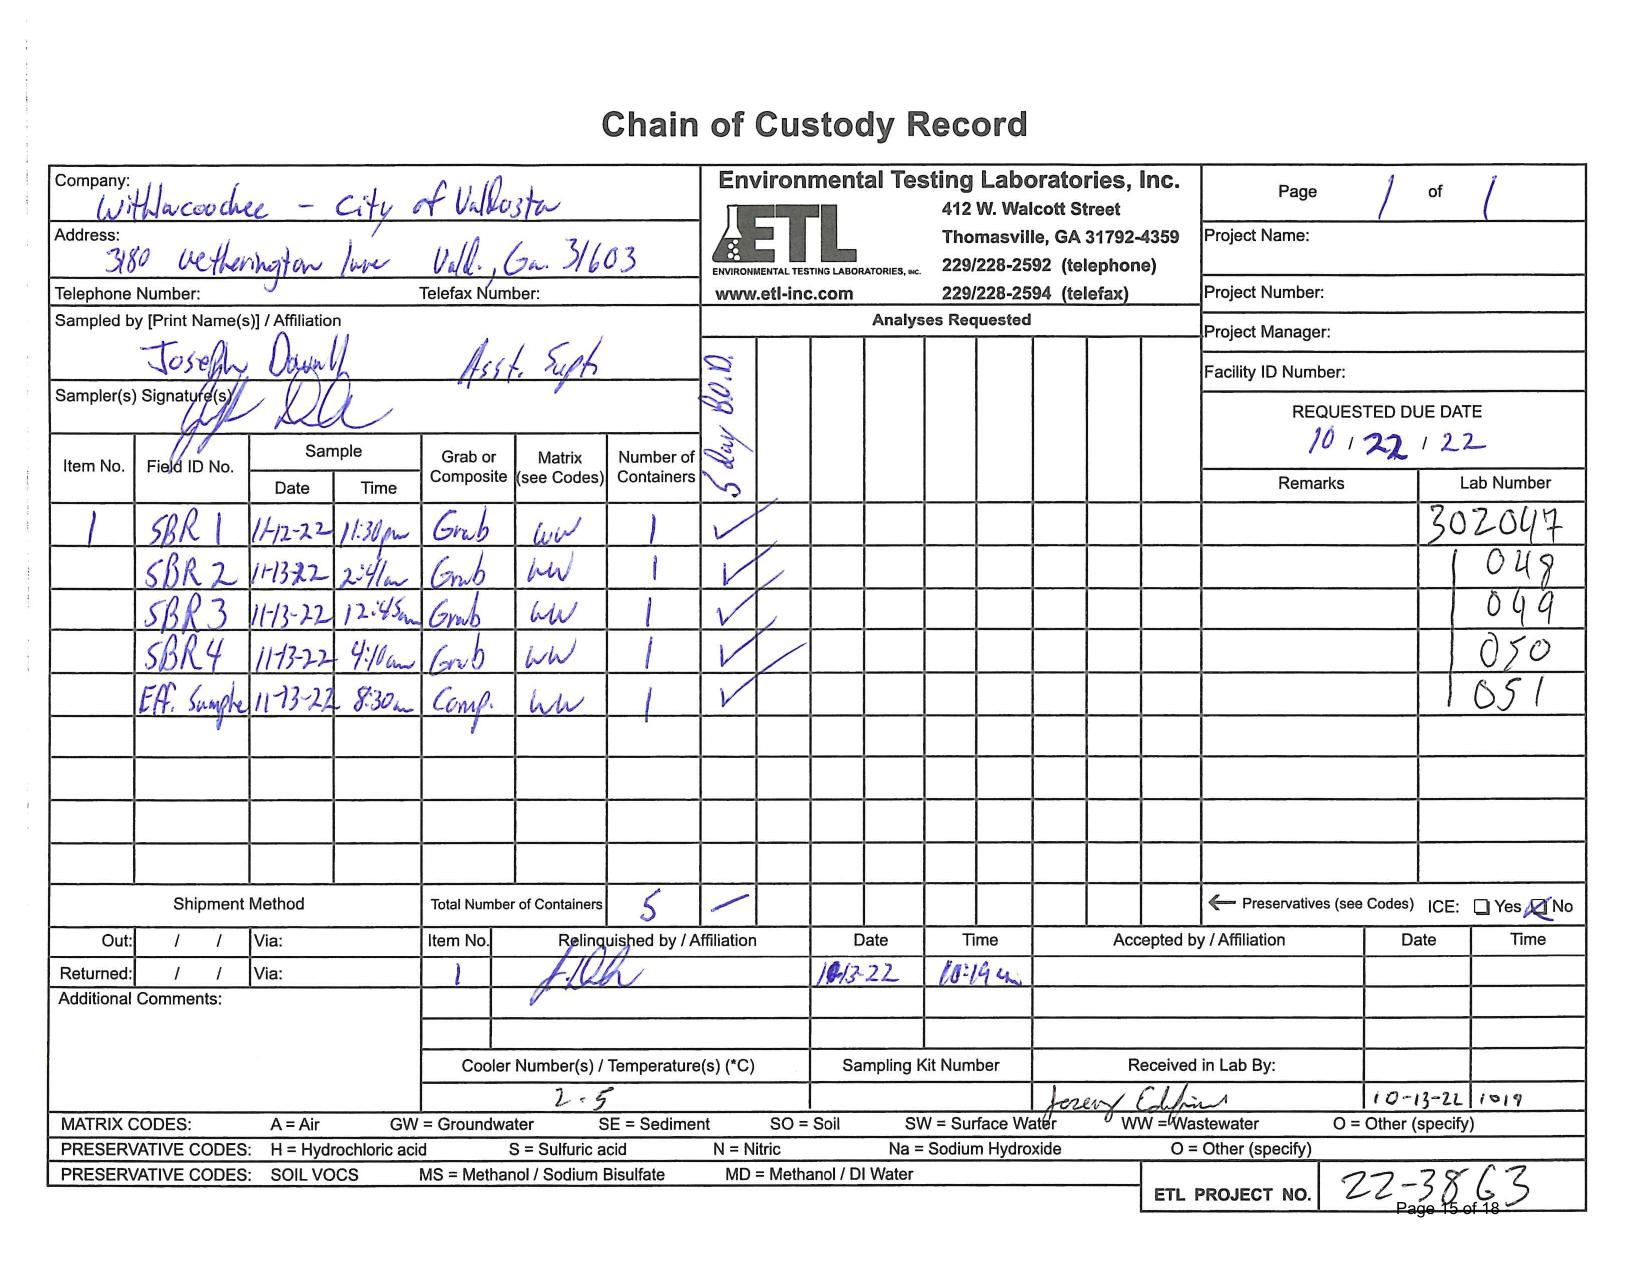 Chain of Custody Record
Company: Withlacoochee - City of Valdosta
Address: 3180 Wetherington lane Vald., Ga. 31603
Telephone Number: Telefax Number:
Environmental Testing Laboratories, Inc.
412 W. Walcott Street
Thomasville, GA 31792-4359
229/228-2592 (telephone)
229/228-2594 (telefax)
ETL
ENVIRONMENTAL TESTING LABORATORIES, INC.
www.etl-inc.com
Page 1 of 1
Project Name:
Project Number:
Project Manager:
Facility ID Number:
REQUESTED DUE DATE
10 / 22 / 22
Sampled by [Print Name(s)] / Affiliation
Joseph Asst. Supt
Sampler(s) Signature(s)
Analyses Requested
5 day B.O.D.
Item No. Field ID No. Sample Date Time Grab or Composite Matrix (see Codes) Number of Containers Remarks Lab Number
1 SBR 1 11-12-22 11:30pm Grab WW 1 ✓ 302047
SBR 2 11-13-22 2:41am Grab WW 1 ✓ 048
SBR 3 11-13-22 12:45am Grab WW 1 ✓ 049
SBR 4 11-13-22 4:10am Grab WW 1 ✓ 050
Eff. Sample 11-13-22 8:30am Comp. WW 1 ✓ 051
Shipment Method Total Number of Containers 5 — ← Preservatives (see Codes) ICE: Yes No
Out: / / Via: Item No. Relinquished by / Affiliation Date Time Accepted by / Affiliation Date Time
Returned: / / Via: 1 10-13-22 10:19am
Additional Comments:
Cooler Number(s) / Temperature(s) (°C) Sampling Kit Number Received in Lab By:
2.5 Jeremy 10-13-22 1019
MATRIX CODES: A = Air GW = Groundwater SE = Sediment SO = Soil SW = Surface Water WW = Wastewater O = Other (specify)
PRESERVATIVE CODES: H = Hydrochloric acid S = Sulfuric acid N = Nitric Na = Sodium Hydroxide O = Other (specify)
PRESERVATIVE CODES: SOIL VOCS MS = Methanol / Sodium Bisulfate MD = Methanol / DI Water
ETL PROJECT NO. 22-3863
Page 15 of 18